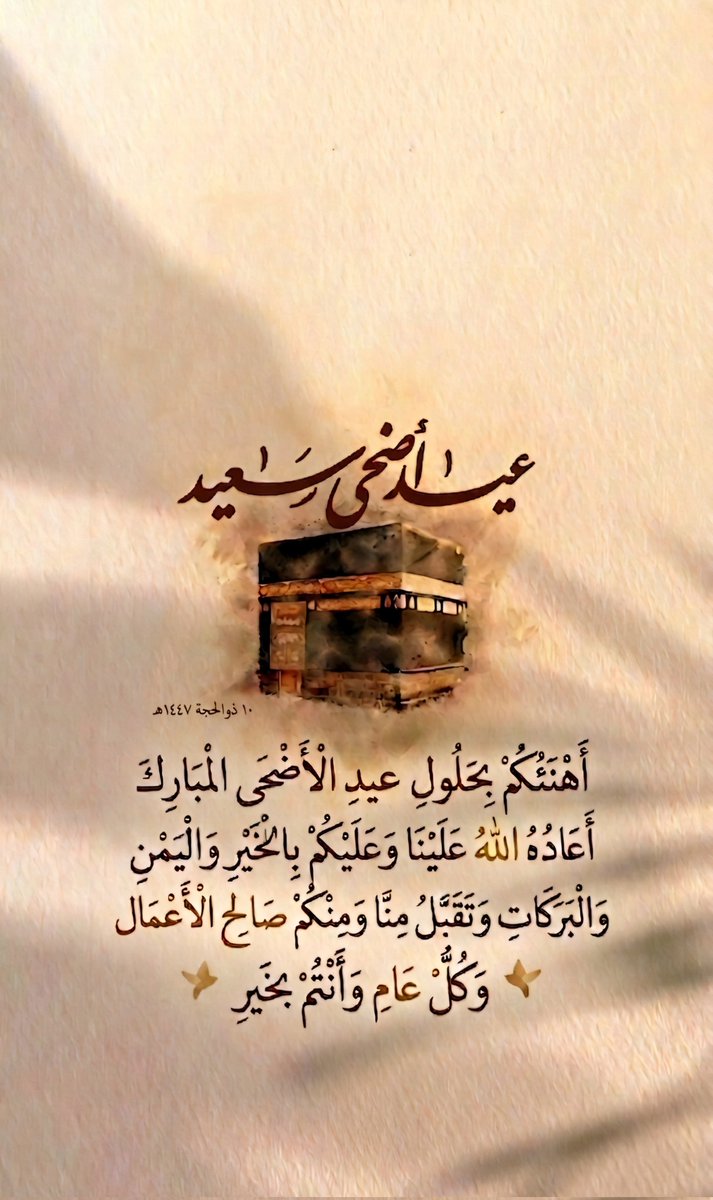 عيد أضحى سعيد
١٠ ذو الحجة ١٤٤٧هـ
أَهْنَئُكُمْ بِحَلُولِ عيدِ الْأَضْحَى الْمْبَارِكَ
أَعَادُهُ اللهُ عَلَيْنَا وَعَلَيْكُمْ بِالْخَيْرِ وَالْيَمْنِ
وَالْبَرَكَاتِ وَتَقَبَّلُ مِنَّا وَمِنْكُمْ صَالِحِ الْأَعْمَال
وَكُلُّ عَامِ وَأَنْتُمْ بخَيرِ